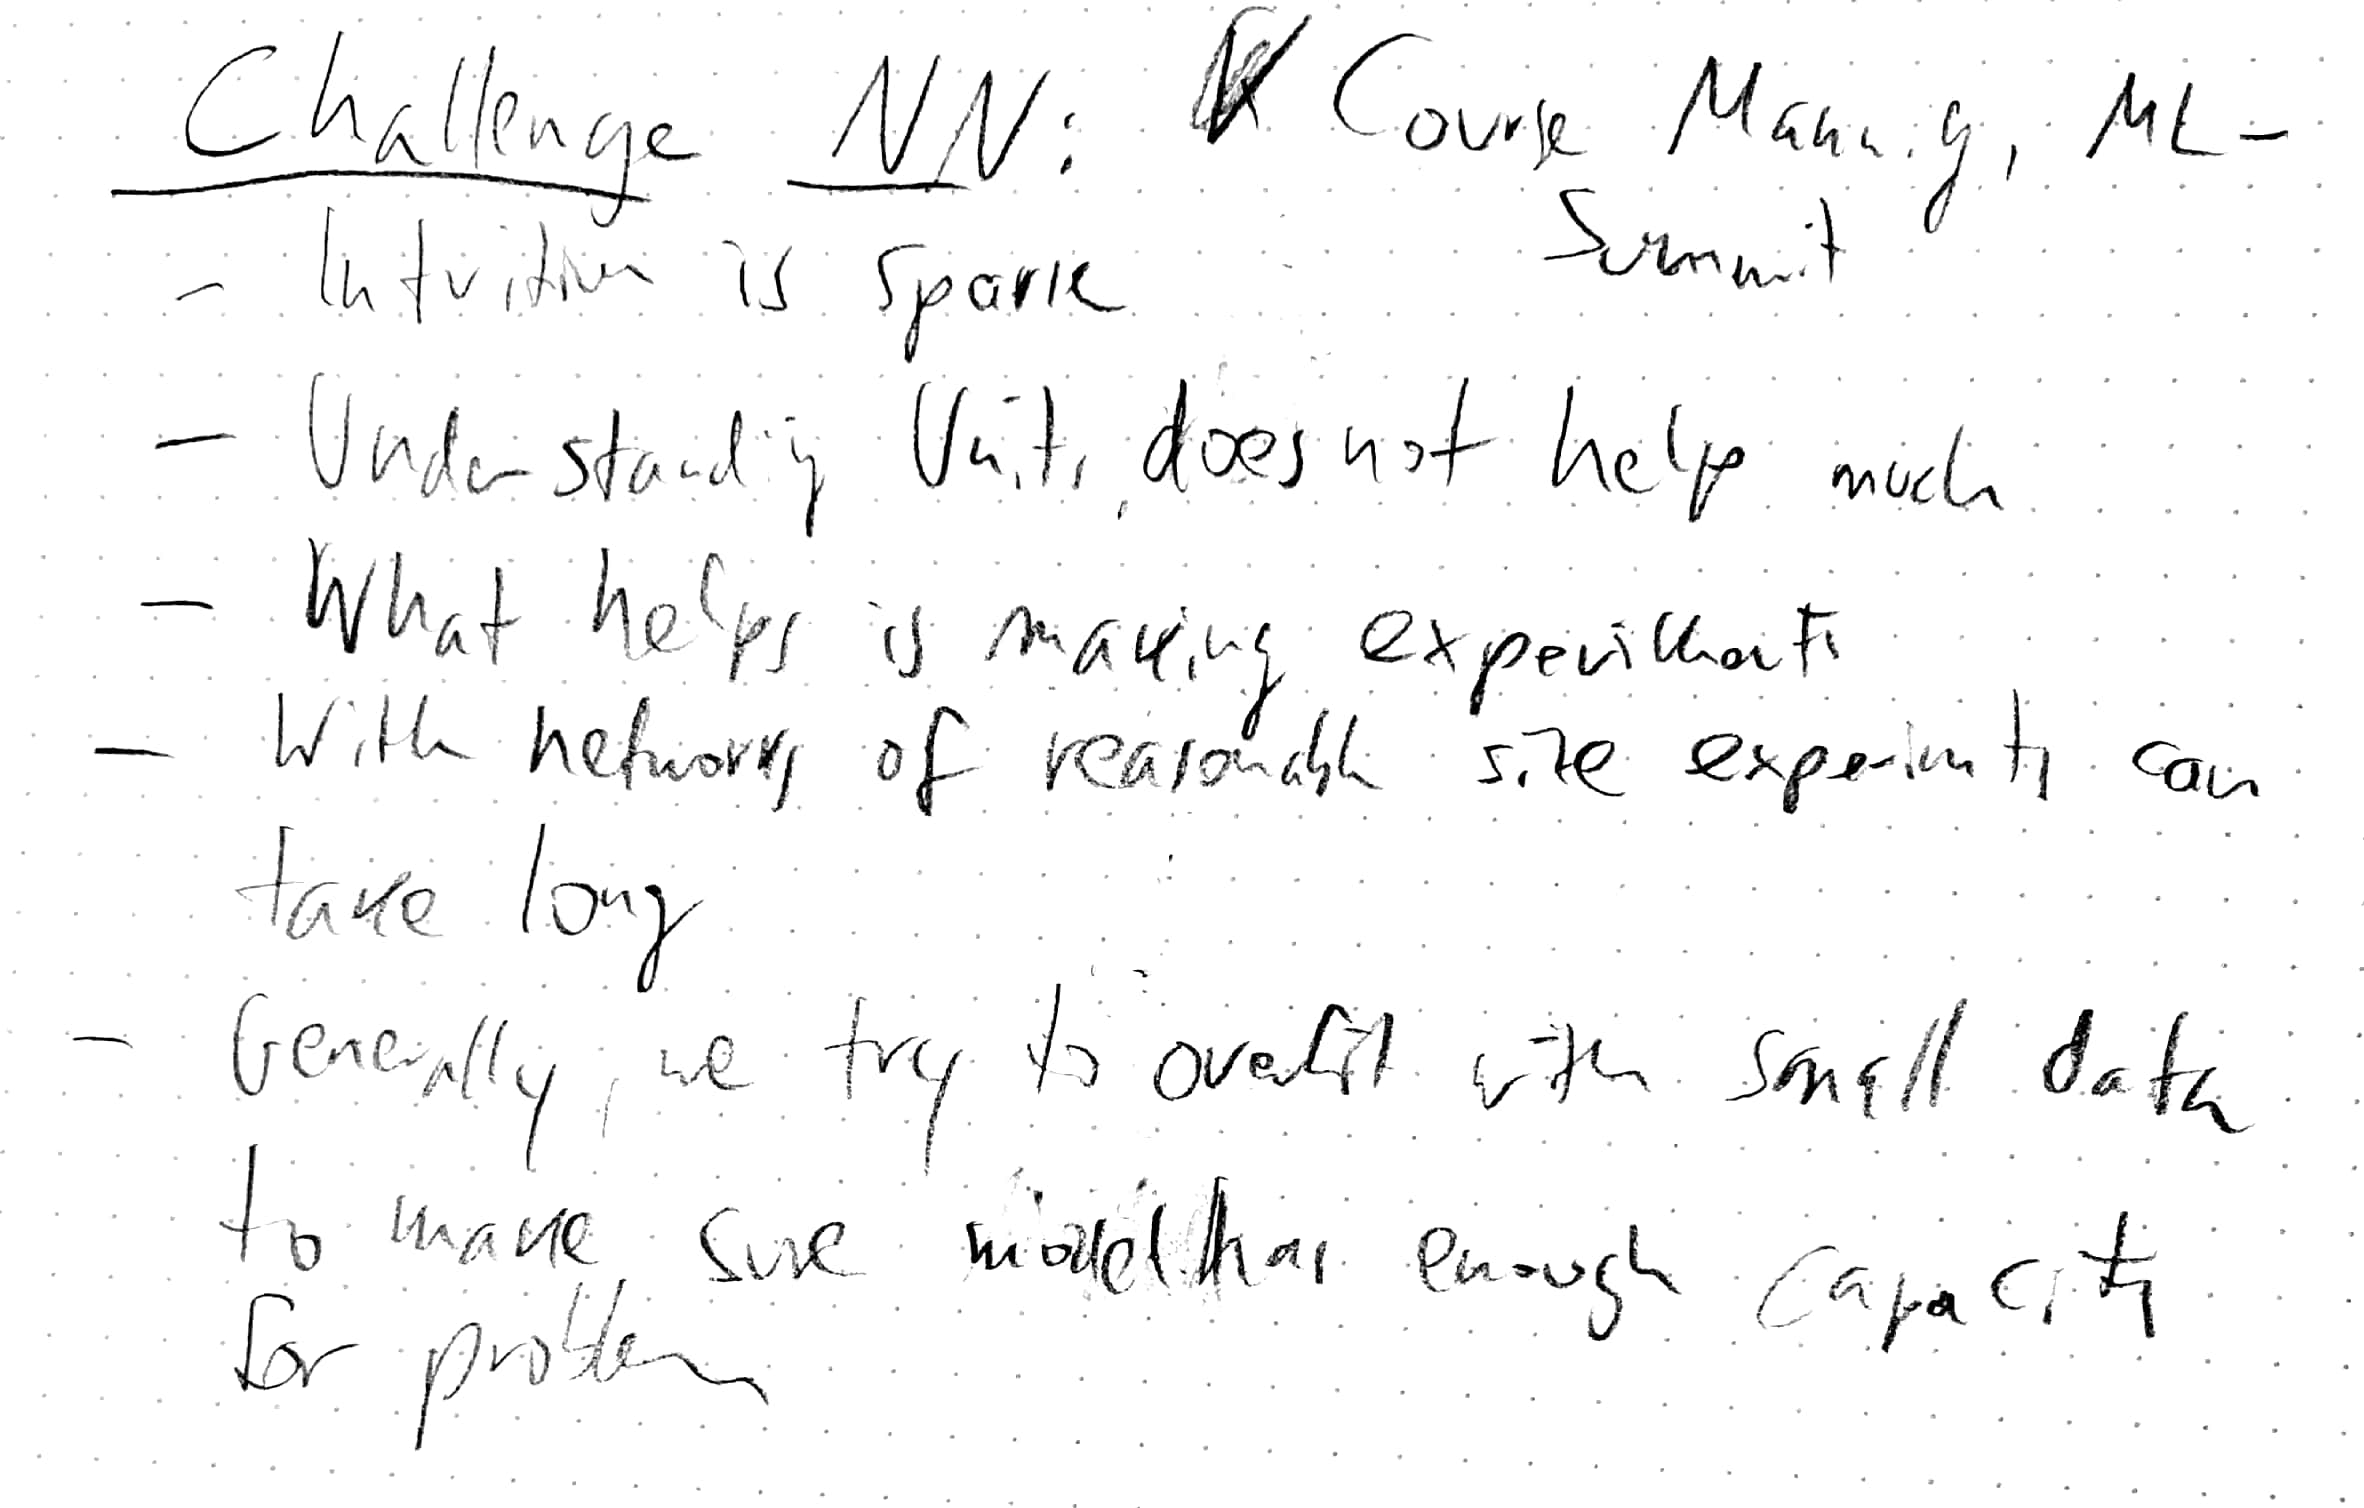 Challenge NN: Course Mannig, ML-
Summit
- Intuition is sparse
- Understanding Units does not help much
- What helps is making experiments
- With networks of reasonable size experiments can
take long
- Generally, we try to overfit with small data
to make sure model has enough capacity
for problem